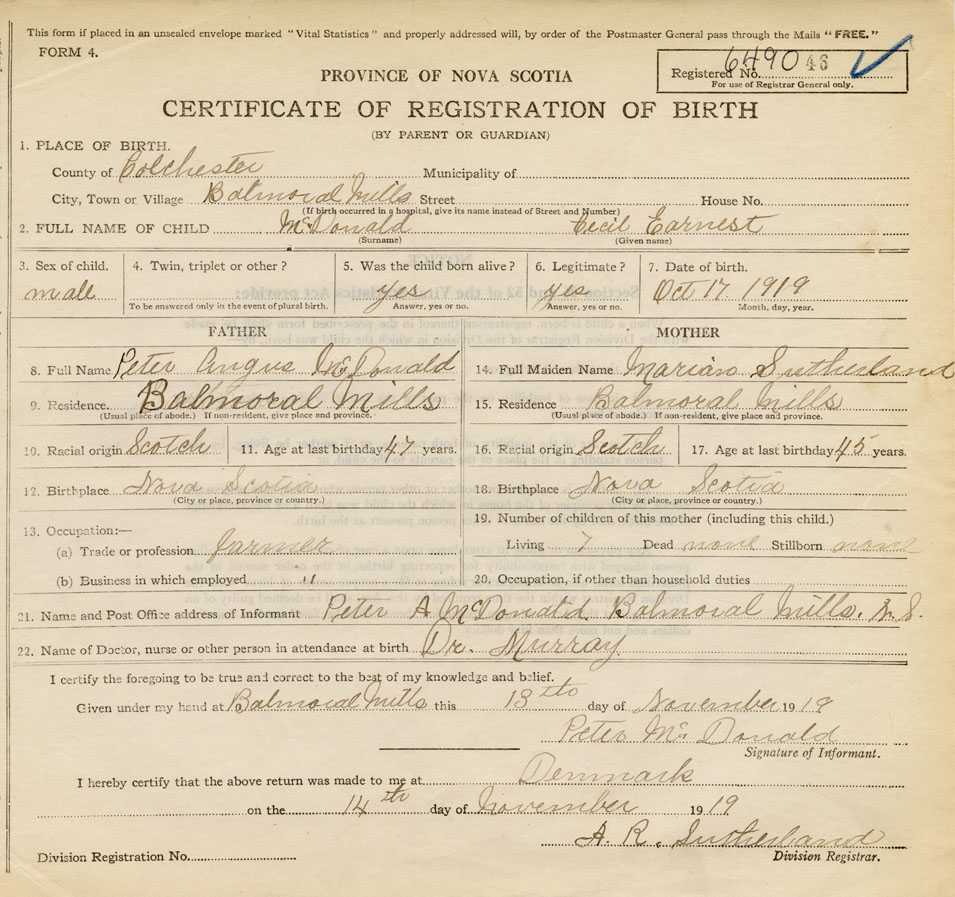 This form if placed in an unsealed envelope marked "Vital Statistics" and properly addressed will, by order of the Postmaster General pass through the Mails "FREE."
FORM 4.
Registered No. 6490 46
For use of Registrar General only.
PROVINCE OF NOVA SCOTIA
CERTIFICATE OF REGISTRATION OF BIRTH
(BY PARENT OR GUARDIAN)
1. PLACE OF BIRTH.
County of Colchester Municipality of
City, Town or Village Balmoral Mills Street House No.
(If birth occurred in a hospital, give its name instead of Street and Number)
2. FULL NAME OF CHILD McDonald Cecil Earnest
(Surname) (Given name)
3. Sex of child. 4. Twin, triplet or other? 5. Was the child born alive? 6. Legitimate? 7. Date of birth.
mall yes yes Oct 17 1919
To be answered only in the event of plural birth. Answer, yes or no. Answer, yes or no. Month, day, year.
FATHER MOTHER
8. Full Name Peter Angus McDonald 14. Full Maiden Name Marian Sutherland
9. Residence. Balmoral Mills 15. Residence Balmoral Mills
(Usual place of abode.) If non-resident, give place and province. (Usual place of abode.) If non-resident, give place and province.
10. Racial origin Scotch 11. Age at last birthday 47 years. 16. Racial origin Scotch 17. Age at last birthday 45 years.
12. Birthplace Nova Scotia 18. Birthplace Nova Scotia
(City or place, province or country.) (City or place, province or country.)
13. Occupation:— 19. Number of children of this mother (including this child.)
(a) Trade or profession farmer Living 7 Dead none Stillborn none
(b) Business in which employed " 20. Occupation, if other than household duties
21. Name and Post Office address of Informant Peter A McDonald. Balmoral Mills. N.S.
22. Name of Doctor, nurse or other person in attendance at birth Dr. Murray
I certify the foregoing to be true and correct to the best of my knowledge and belief.
Given under my hand at Balmoral Mills this 13th day of November 1919
Peter McDonald
Signature of Informant.
I hereby certify that the above return was made to me at Denmark
on the 14th day of November 1919
A. R. Sutherland
Division Registration No. Division Registrar.